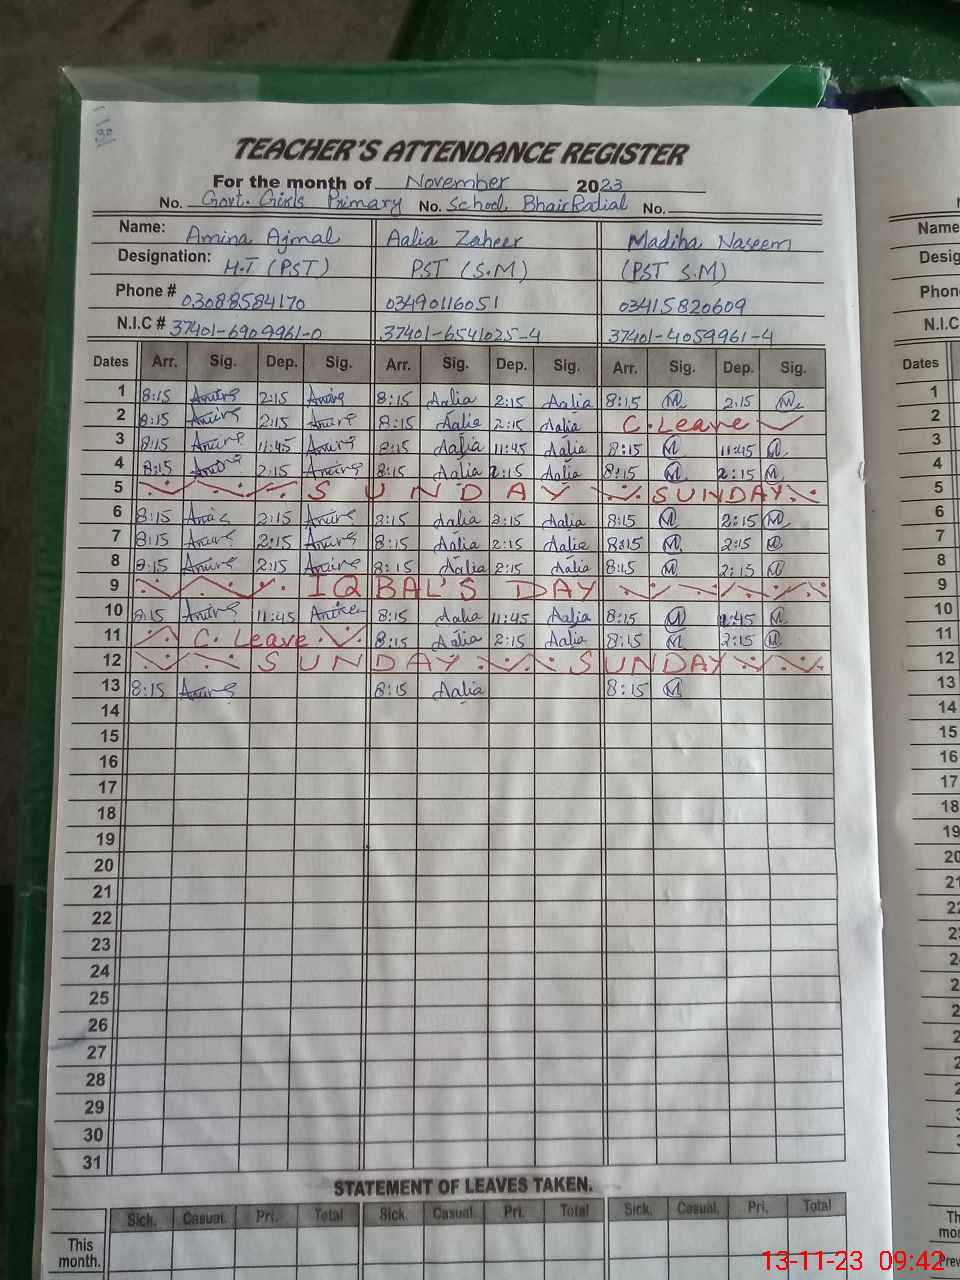 30
TEACHER'S ATTENDANCE REGISTER
For the month of November 2023
No. Govt. Girls Primary No. School Bhair Ratial No.
Name: Amina Ajmal Aalia Zaheer Madiha Naseem
Designation: H.T (PST) PST (S.M) (PST S.M)
Phone # 03088584170 03490116051 03415820609
N.I.C # 37401-6909961-0 37401-6541025-4 37401-4059961-4
Dates Arr. Sig. Dep. Sig. Arr. Sig. Dep. Sig. Arr. Sig. Dep. Sig.
1 8:15 2:15 8:15 Aalia 2:15 Aalia 8:15 M 2:15 M
2 8:15 2:15 8:15 Aalia 2:15 Aalia C.Leave
3 8:15 11:45 8:15 Aalia 11:45 Aalia 8:15 M 11:45 M
4 8:15 2:15 8:15 Aalia 2:15 Aalia 8:15 M 2:15 M
5 SUNDAY SUNDAY
6 8:15 2:15 8:15 Aalia 2:15 Aalia 8:15 M 2:15 M
7 8:15 2:15 8:15 Aalia 2:15 Aalia 8:15 M 2:15 M
8 8:15 2:15 8:15 Aalia 2:15 Aalia 8:15 M 2:15 M
9 IQBAL'S DAY
10 8:15 11:45 8:15 Aalia 11:45 Aalia 8:15 M 11:45 M
11 C. Leave 8:15 Aalia 2:15 Aalia 8:15 M 2:15 M
12 SUNDAY SUNDAY
13 8:15 8:15 Aalia 8:15 M
14
15
16
17
18
19
20
21
22
23
24
25
26
27
28
29
30
31
STATEMENT OF LEAVES TAKEN.
Sick. Casual. Pri. Total Sick. Casual. Pri. Total Sick. Casual. Pri. Total
This
month.
Name
Desig
Phon
N.I.C
Dates
1
2
3
4
5
6
7
8
9
10
11
12
13
14
15
16
17
18
19
20
21
22
13-11-23 09:42